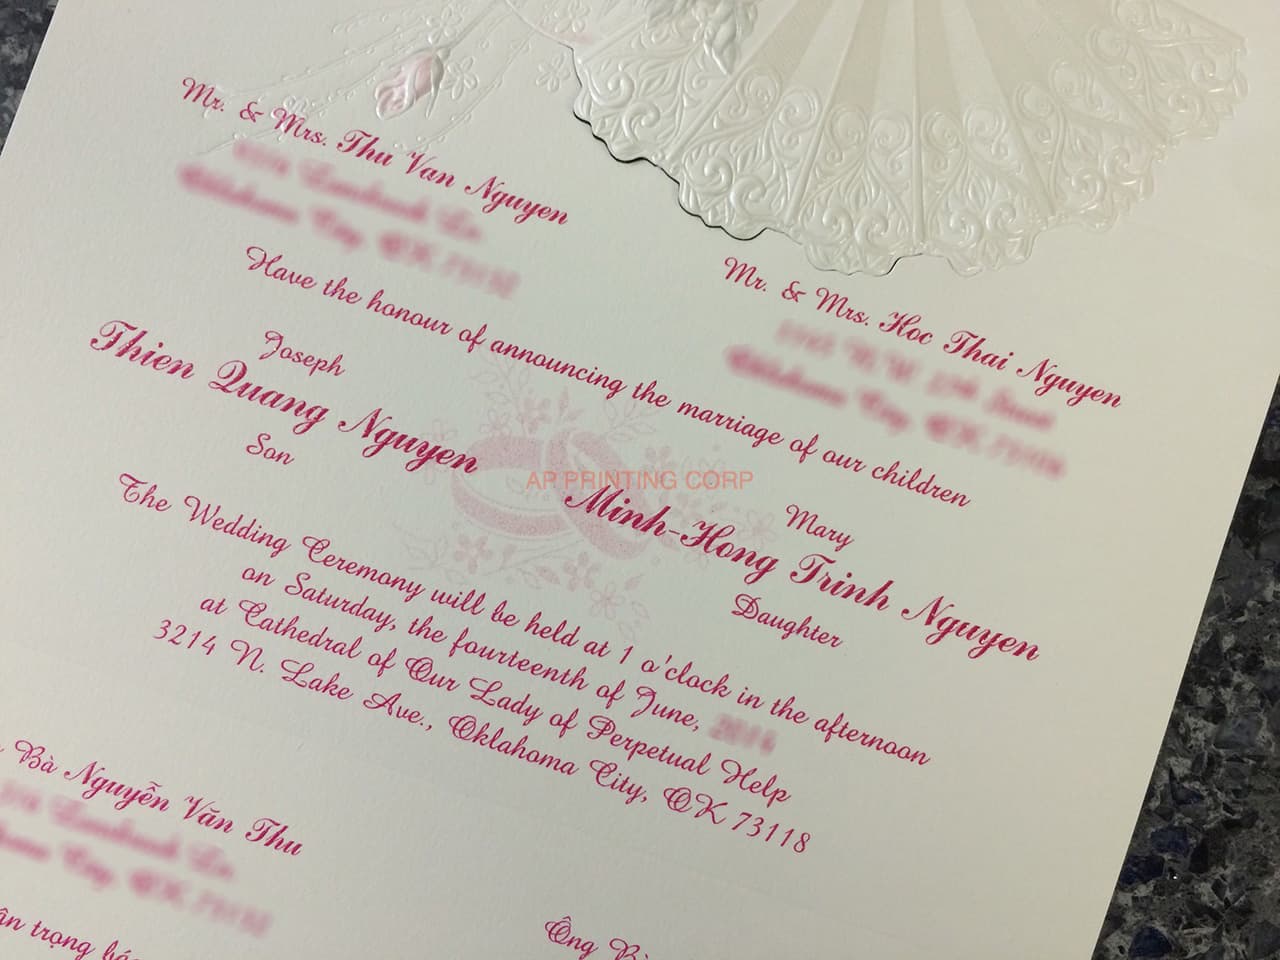 Mr. & Mrs. Thu Van Nguyen
Mr. & Mrs. Hoc Thai Nguyen
Have the honour of announcing the marriage of our children
Joseph
Thien Quang Nguyen
Son
Mary
Minh-Hong Trinh Nguyen
Daughter
AP PRINTING CORP
The Wedding Ceremony will be held at 1 o'clock in the afternoon
on Saturday, the fourteenth of June,
at Cathedral of Our Lady of Perpetual Help
3214 N. Lake Ave., Oklahoma City, OK 73118
Bà Nguyễn Văn Thu
trọng
Ông